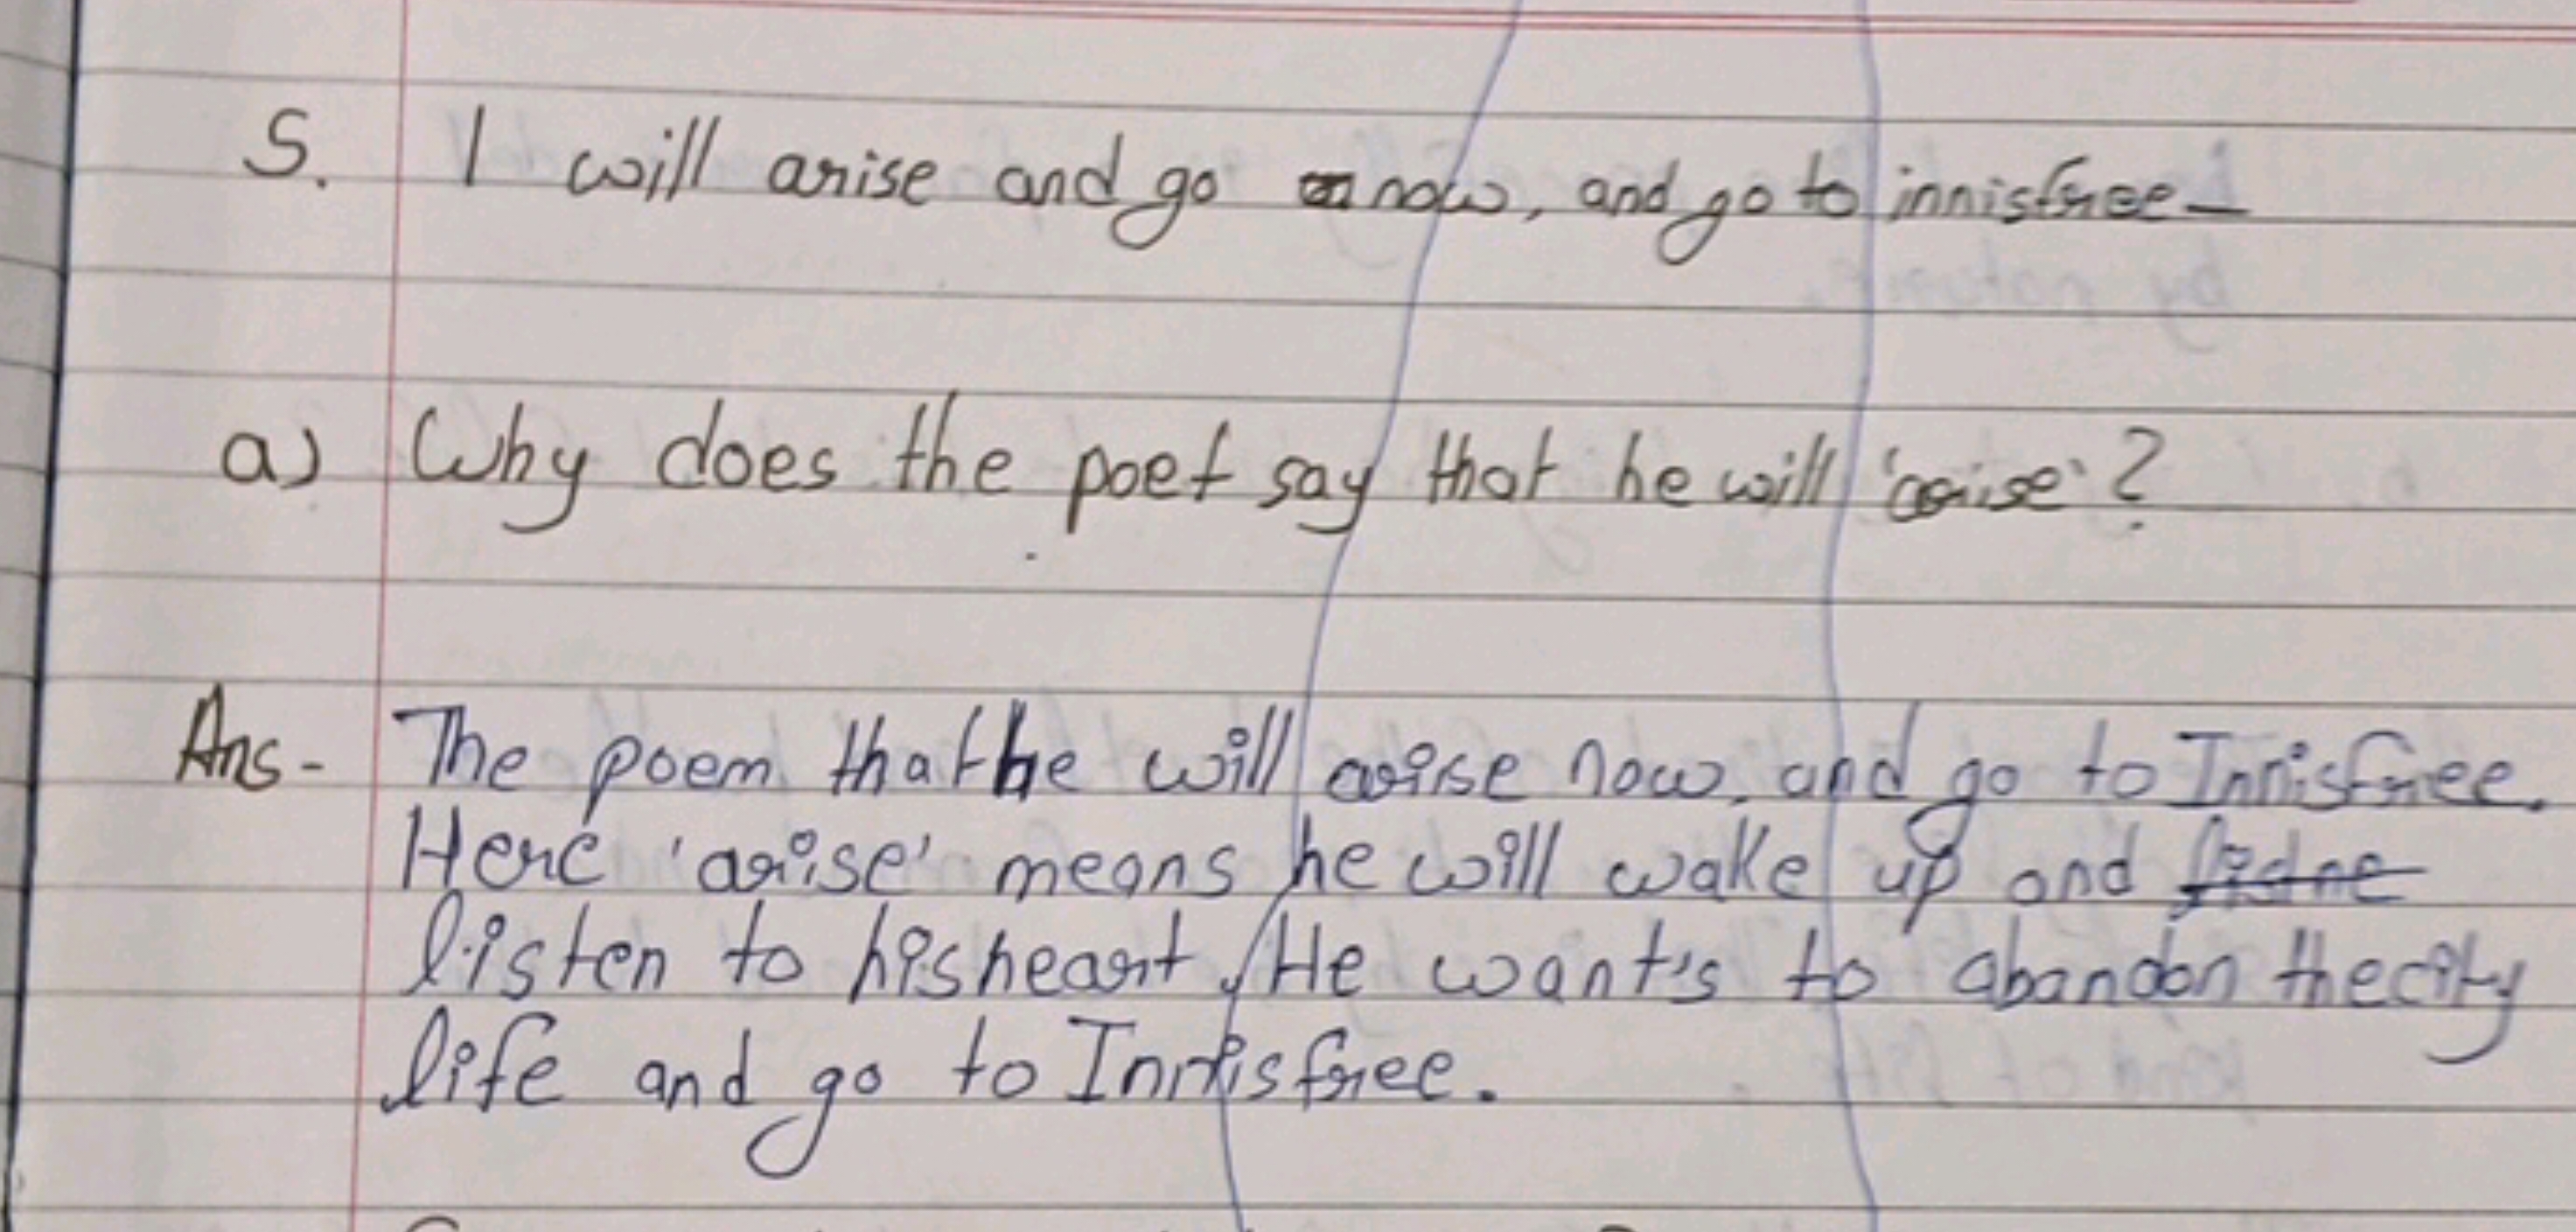 5. I will arise and go now, and go to innisfree-
a) Why does the poet say that he will 'arise'?
Ans- The poem that he will arise now, and go to Innisfree.
Here 'arise' means he will wake up and
listen to his heart. He want's to abandon the city
life and go to Innisfree.